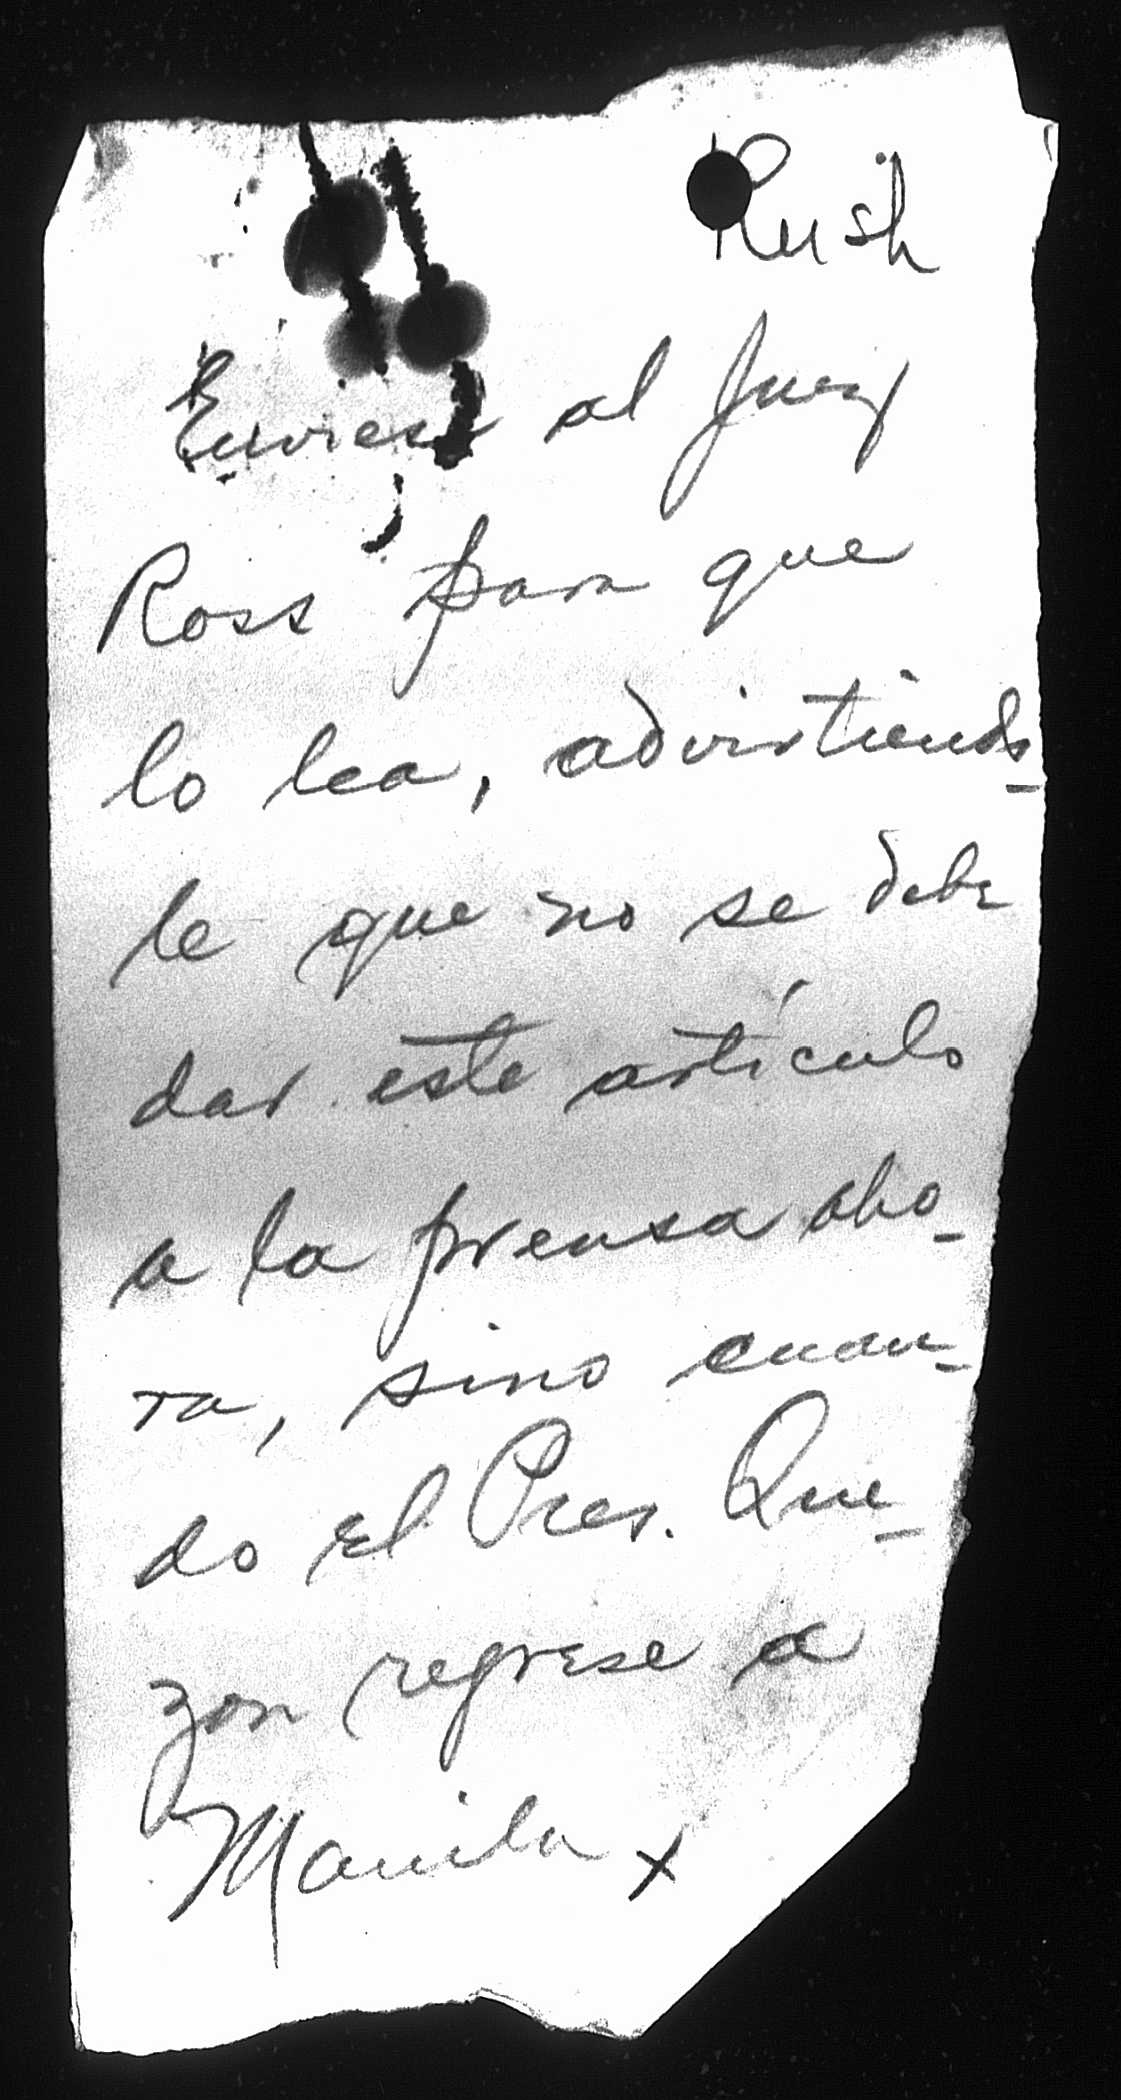 Rush
Enviese al Juez
Ross para que
lo lea, advirtiendo-
le que no se debe
dar este artículo
a la prensa aho-
ra, sino cuan-
do el Pres. Que-
zon regrese a
Manila x